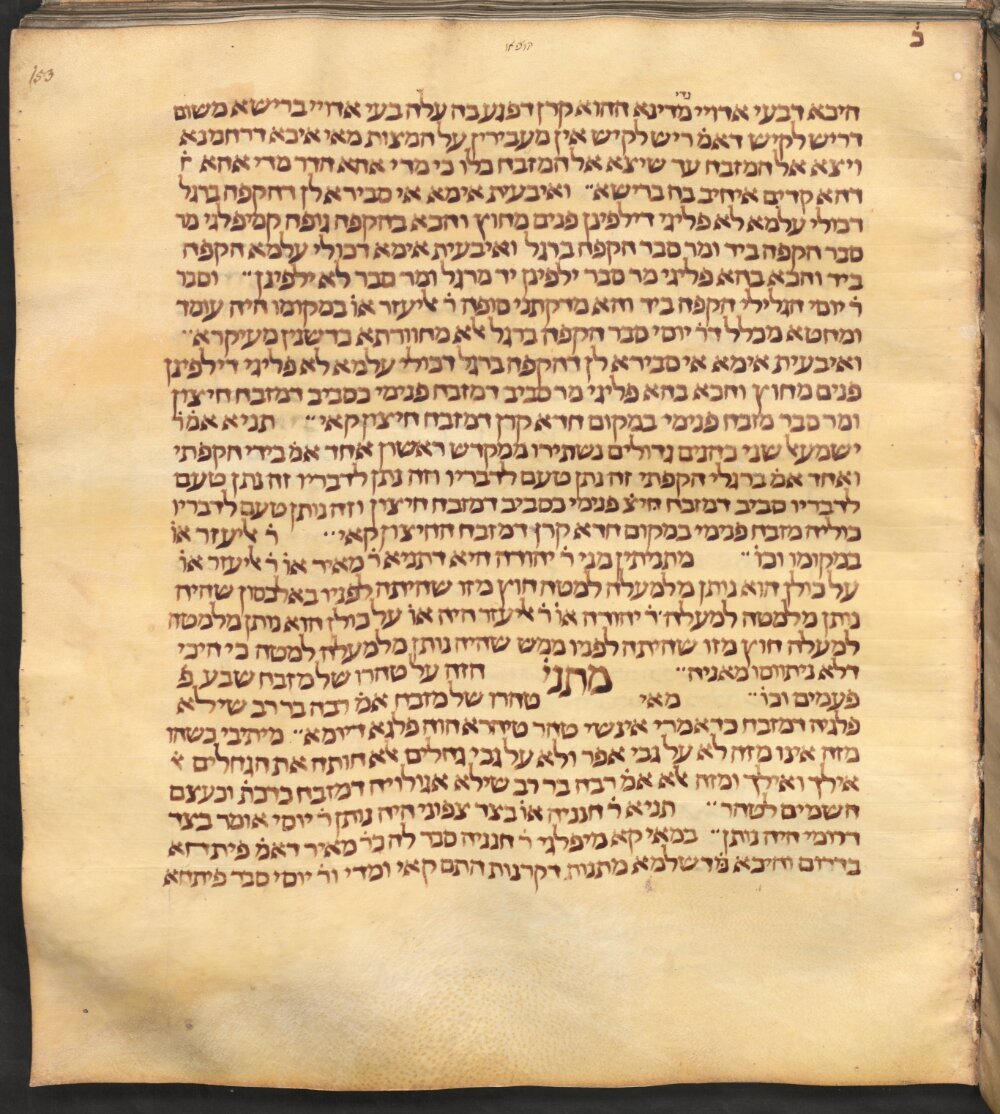 153
היכא דבעי אדויי מדינא ההוא קרן דפגע בה עלה בעי אדויי ברישא משום
דריש לקיש דאמ׳ ריש לקיש אין מעבירין על המצות מאי איכא דרחמנא
ויצא אל המזבח עד שיצא אל המזבח כלו כי מדי אהא הדר מדי אהא
דהא קדים איחיב בה ברישא ואיבעית אימא אי סבירא לן דהקפה ברגל
דכולי עלמא לא פליגי דילפינן פנים מחוץ והכא בהקפה גופה קמיפלגי מר
סבר הקפה ביד ומר סבר הקפה ברגל ואיבעית אימא דכולי עלמא הקפה
ביד והכא בהא פליגי מר סבר ילפינן יד מרגל ומר סבר לא ילפינן וסבר
ר׳ יוסי הגלילי הקפה ביד והא מדקתני סופה ר׳ אליעזר או׳ במקומו היה עומד
ומחטא מכלל דר׳ יוסי סבר הקפה ברגל אלא מחוורתא כדשנין מעיקרא
ואיבעית אימא אי סבירא לן דהקפה ברגל דכולי עלמא לא פליגי דילפינן
פנים מחוץ והכא בהא פליגי מר סביב דמזבח פנימי כסביב דמזבח חיצון
ומר סבר מזבח פנימי במקום חדא קרן דמזבח חיצון קאי תניא אמ׳ ר׳
ישמעאל שני כהנים גדולים נשתיירו ממקדש ראשון אחד אמ׳ בידי הקפתי
ואחד אמ׳ ברגלי הקפתי זה נתן טעם לדבריו וזה נתן לדבריו זה נתן טעם
לדבריו סביב דמזבח חיצ׳ פנימי כסביב דמזבח חיצון וזה נותן טעם לדבריו
כוליה מזבח פנימי במקום חדא קרן דמזבח החיצון קאי ר׳ אליעזר או׳
במקומו וכו׳ מתניתין מני ר׳ יהודה היא דתניא ר׳ מאיר או׳ ר׳ אליעזר או׳
על כולן הוא נותן מלמעלה למטה חוץ מזו שהיתה לפניו באלכסון שהיה
נותן מלמטה למעלה ר׳ יהודה או׳ ר׳ אליעזר היה או׳ על כולן הוא נותן מלמטה
למעלה חוץ מזו שהיתה לפניו ממש שהיה נותן מלמעלה למטה כי היכי
דלא ניתווסו מאניה מתני׳ הזה על טהרו של מזבח שבע פ
פעמים וכו׳ מאי טהרו של מזבח אמ׳ רבה בר רב שילא
פלגיה דמזבח כדאמרי אינשי טהר טיהרא הוה פלגא דיומא מיתיבי כשהו
מזה אינו מזה לא על גבי אפר ולא על גבי גחלים אלא חותה את הגחלים
אילך ואילך ומזה אלא אמ׳ רבה בר רב שילא אגולויה דמזבח כדכת׳ וכעצם
השמים לטהר תניא ר׳ חנניה או׳ בצד צפוני היה נותן ר׳ יוסי אומר בצד
דרומי היה נותן במאי קא מיפלגי ר׳ חנניה סבר לה כר׳ מאיר דאמ׳ פיתחא
בדרום והיכא מדשלמא מתנות דקרנות התם קאי ומדי ור׳ יוסי סבר פיתחא